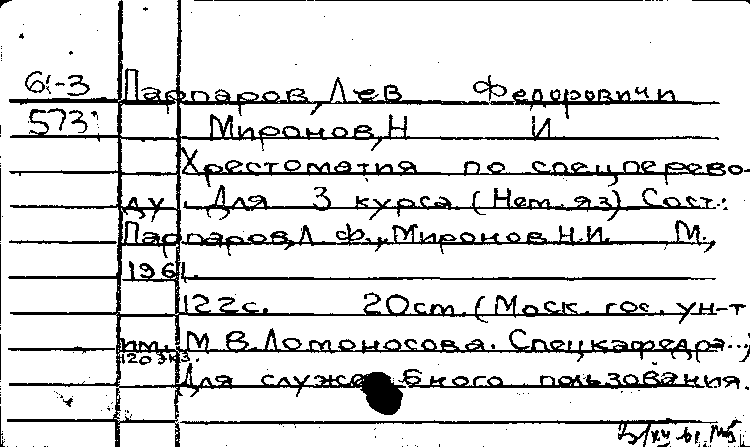 61-3 Парпаров, Лев Федорович и
573 Миронов, Н И
Хрестоматия по спецперево-
ду. Для 3 курса (Нем. яз) Сост.:
Парпаров, Л. Ф., Миронов Н.И. М.,
1961.
122с. 20см. (Моск. гос. ун-т
им. М В. Ломоносова. Спецкафедра..)
120 экз.
Для служебного пользования.